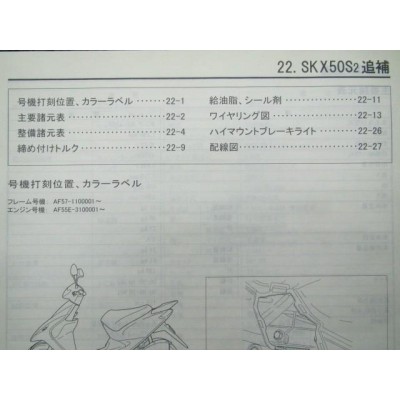 22. SKX50S2追補
号機打刻位置、カラーラベル ········ 22-1
主要諸元表 ··················· 22-2
整備諸元表 ··················· 22-4
締め付けトルク ················ 22-9
給油脂、シール剤 ·············· 22-11
ワイヤリング図 ················ 22-13
ハイマウントブレーキライト ······ 22-26
配線図 ······················ 22-27
号機打刻位置、カラーラベル
フレーム号機 AF57-1100001〜
エンジン号機 AF55E-3100001〜